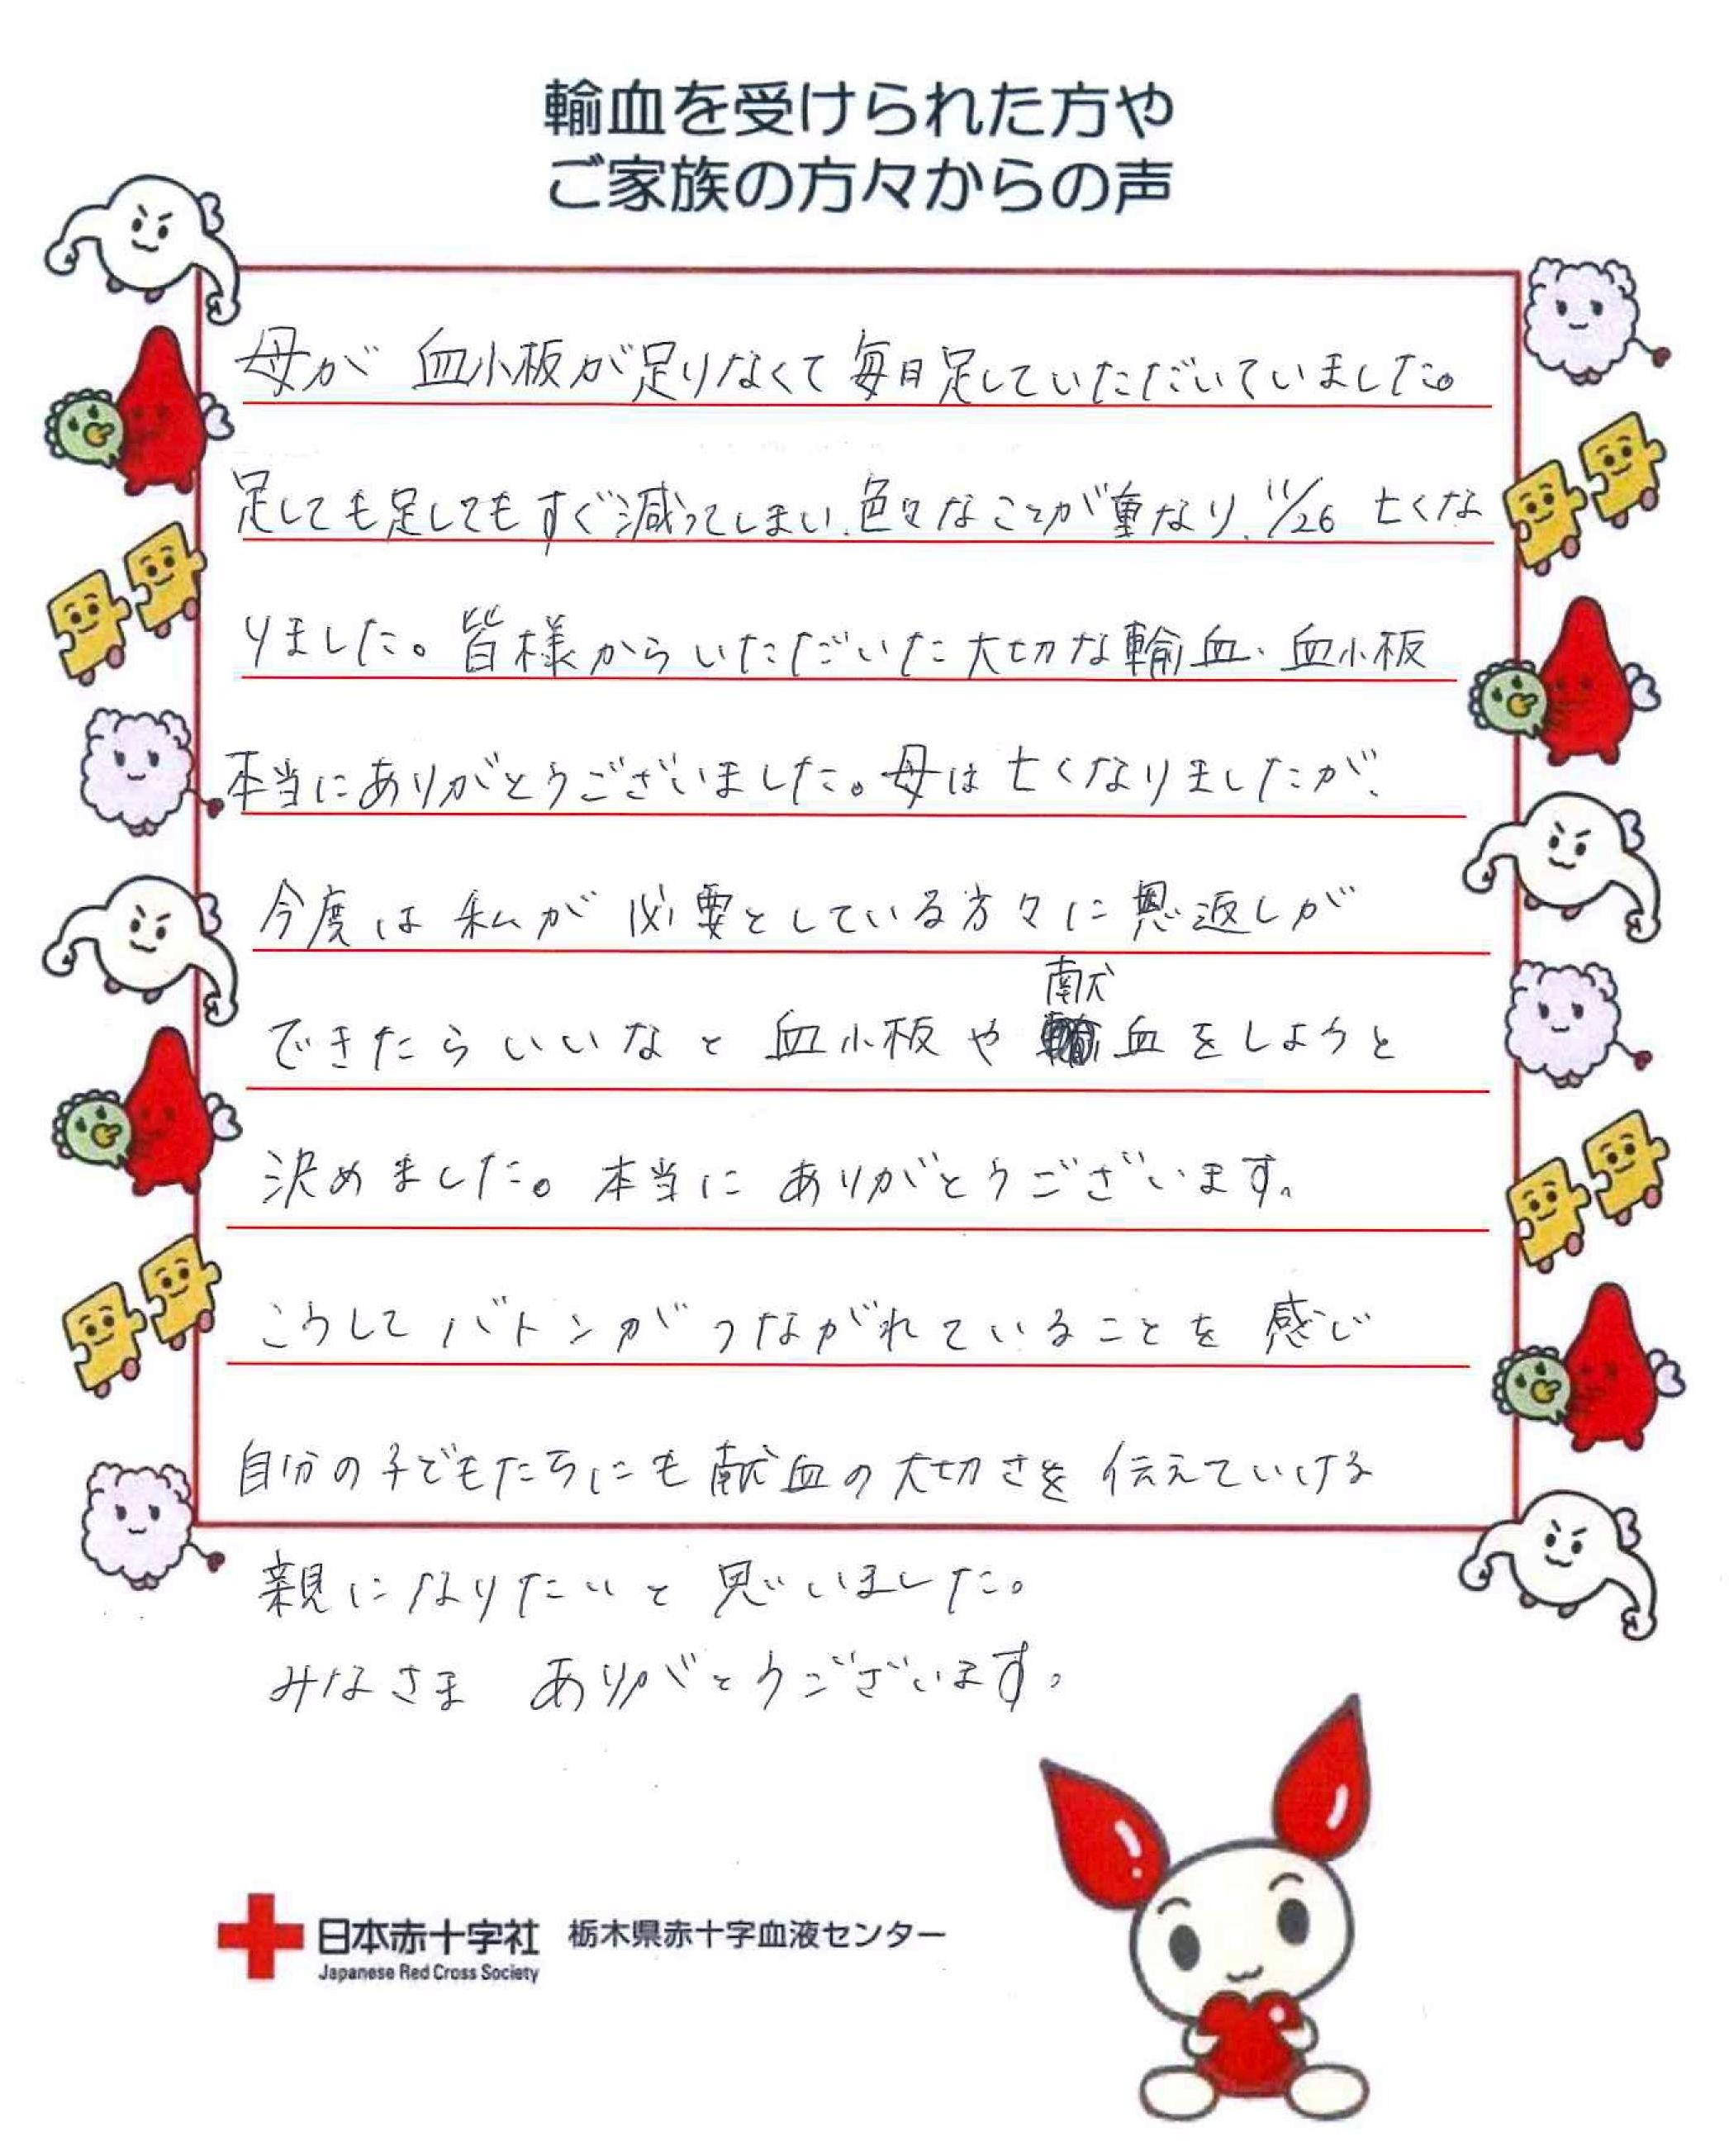 輸血を受けられた方や
ご家族の方々からの声
母が 血小板が足りなくて 毎日足していただいていました。
足しても足してもすぐ減ってしまい、色々なことが重なり、11/26 亡くな
りました。皆様からいただいた大切な輸血、血小板
本当にありがとうございました。母は亡くなりましたが、
今度は私が必要としている方々に恩返しが
献
できたらいいなと血小板や 血をしようと
決めました。本当にありがとうございます。
こうしてバトンがつながれていることを感じ
自分の子どもたちにも献血の大切さを伝えていける
親になりたいと思いました。
みなさま ありがとうございます。
日本赤十字社 栃木県赤十字血液センター
Japanese Red Cross Society